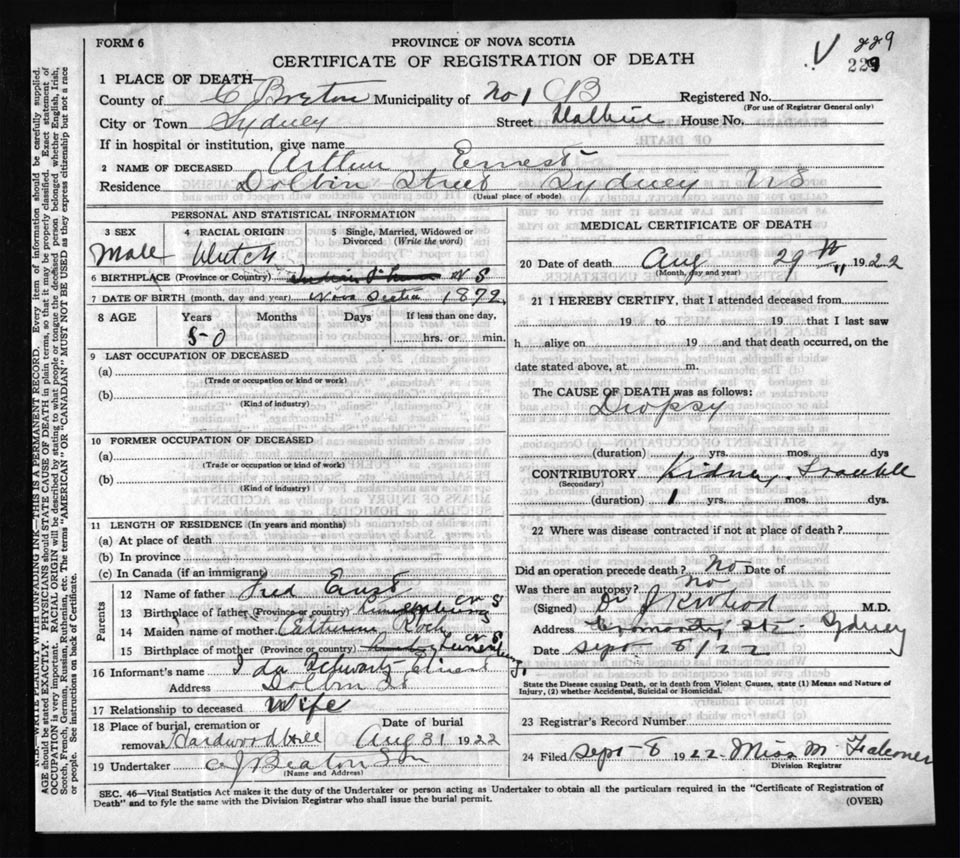 FORM 6
PROVINCE OF NOVA SCOTIA
CERTIFICATE OF REGISTRATION OF DEATH
√ 229
229
1 PLACE OF DEATH—
County of C Breton Municipality of No 1 CB Registered No.
(For use of Registrar General only)
City or Town Sydney Street House No.
If in hospital or institution, give name
2 NAME OF DECEASED Arthur Ernest
Residence Dolbin Street Sydney NS
(Usual place of abode)
PERSONAL AND STATISTICAL INFORMATION
3 SEX 4 RACIAL ORIGIN 5 Single, Married, Widowed or Divorced (Write the word)
Male Dutch
6 BIRTHPLACE (Province or Country) N S
7 DATE OF BIRTH (month, day and year) Nova Scotia 1872
8 AGE Years Months Days If less than one day,
50 hrs. or min.
9 LAST OCCUPATION OF DECEASED
(a)
(Trade or occupation or kind or work)
(b)
(Kind of industry)
10 FORMER OCCUPATION OF DECEASED
(a)
(Trade or occupation or kind or work)
(b)
(Kind of industry)
11 LENGTH OF RESIDENCE (In years and months)
(a) At place of death
(b) In province
(c) In Canada (if an immigrant)
Parents
12 Name of father Fred Ernst
13 Birthplace of father (Province or country) Lunenburg N S
14 Maiden name of mother Catherine Koch
15 Birthplace of mother (Province or country) Lunenburg, N S
16 Informant's name Ida Schwartz Ernest
Address Dolbin St
17 Relationship to deceased Wife
18 Place of burial, cremation or removal Hardwood Hill Date of burial Aug 31 1922
19 Undertaker A J Beaton Son
(Name and Address)
MEDICAL CERTIFICATE OF DEATH
20 Date of death Aug 29th " 1922
(Month, day and year)
21 I HEREBY CERTIFY, that I attended deceased from
19 to 19 that I last saw
h alive on 19 and that death occurred, on the
date stated above, at m.
The CAUSE OF DEATH was as follows:
Dropsy
(duration) yrs. mos. dys.
CONTRIBUTORY Kidney Trouble
(Secondary)
(duration) 1 yrs. mos. dys.
22 Where was disease contracted if not at place of death?
Did an operation precede death? No Date of
Was there an autopsy? No
(Signed) Dr J K McLeod M.D.
Address St. Sydney
Date Sept 8/22
State the Disease causing Death, or in death from Violent Causes, state (1) Means and Nature of Injury, (2) whether Accidental, Suicidal or Homicidal.
23 Registrar's Record Number
24 Filed Sept 8 1922 Miss M. Falconer
Division Registrar
SEC. 46—Vital Statistics Act makes it the duty of the Undertaker or person acting as Undertaker to obtain all the particulars required in the "Certificate of Registration of
Death" and to fyle the same with the Division Registrar who shall issue the burial permit. (OVER)
N.B.—WRITE PLAINLY WITH UNFADING INK—THIS IS A PERMANENT RECORD. Every item of information should be carefully supplied.
AGE should be stated EXACTLY. PHYSICIANS should STATE CAUSE OF DEATH in plain terms, so that it may be properly classified. Exact statement of
OCCUPATION is very important. RACIAL ORIGIN will be described by stating to what people or tongue the deceased person belonged whether English, Irish,
Scotch, French, German, Russian, Ruthenian, etc. The terms "AMERICAN" OR "CANADIAN" MUST NOT BE USED as they express citizenship but not a race
or people. See instructions on back of Certificate.